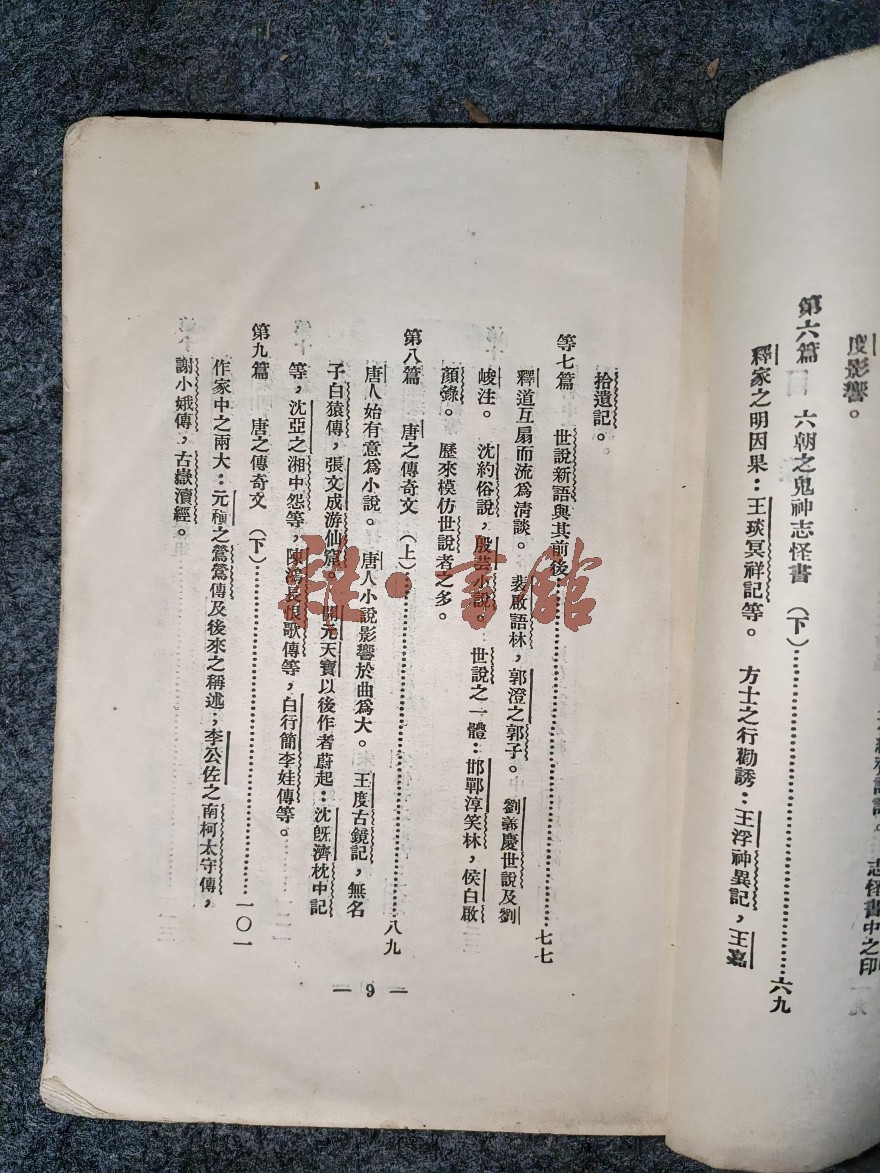 度影響。
志怪書中之印
第六篇 六朝之鬼神志怪書（下）……六九
釋家之明因果：王琰冥祥記等。 方士之行勸誘：王浮神異記，王嘉
拾遺記。
等七篇 世說新語與其前後……七七
釋道互扇而流爲清談。 裴啟語林，郭澄之郭子。 劉義慶世說及劉
峻注。 沈約俗說，殷芸小說。 世說之一體：邯鄲淳笑林，侯白啟
顏錄。 歷來模仿世說者之多。
第八篇 唐之傳奇文（上）……八九
唐人始有意爲小說。 唐人小說影響於曲爲大。 王度古鏡記，無名
子白猿傳，張文成游仙窟。 開元天寶以後作者蔚起：沈旣濟枕中記
等，沈亞之湘中怨等，陳鴻長恨歌傳等，白行簡李娃傳等。
第九篇 唐之傳奇文（下）……一〇一
作家中之兩大：元稹之鶯鶯傳及後來之稱述；李公佐之南柯太守傳，
謝小娥傳，古嶽瀆經。
— 9 —
書館